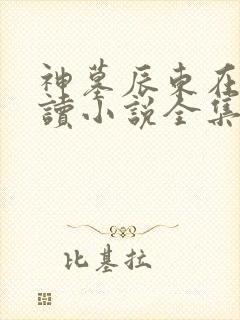 神墓辰东在
讀小說全集
比基拉